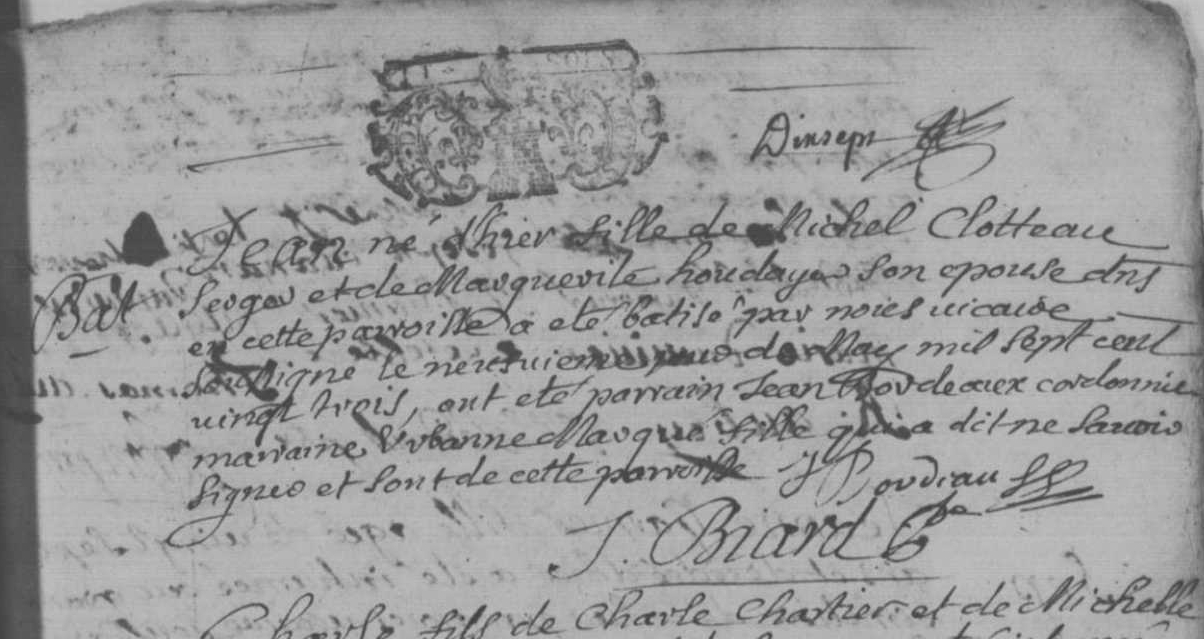 Bat
Jean né d'hier fille de Michel Clotteau
serger et de Marguerite houdayer son epouse dns
en cette parroisse a eté batisé par nous vicaire
soussigné le neufuieme jour de May mil sept cent
vingt trois, ont eté parrain Jean Bourdeaux cordonnie
marraine Urbanne Marqué fille qui a dit ne sauoir
signer et sont de cette parroisse J
J. Biard
Charle fils de Charle Chartier et de Michelle